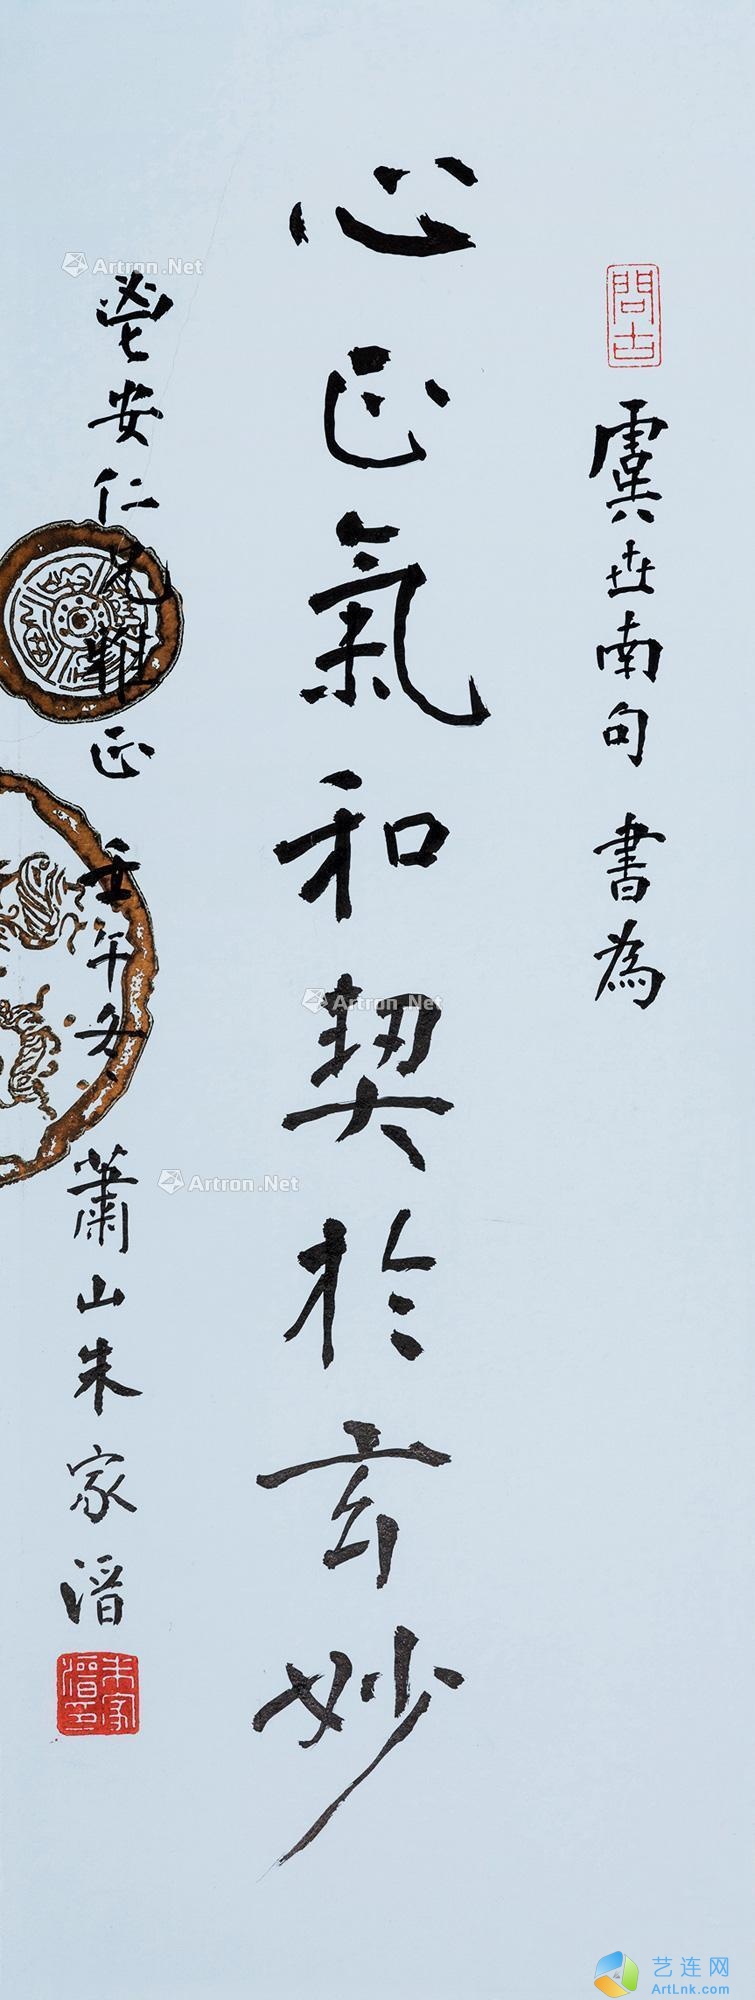 問古
虞世南句 書為
心正氣和契於玄妙
鬯安仁兄雅正 壬午冬 蕭山朱家溍
朱家溍印
Artron.Net
Artron.Net
Artron.Net
艺连网
ArtLnk.com